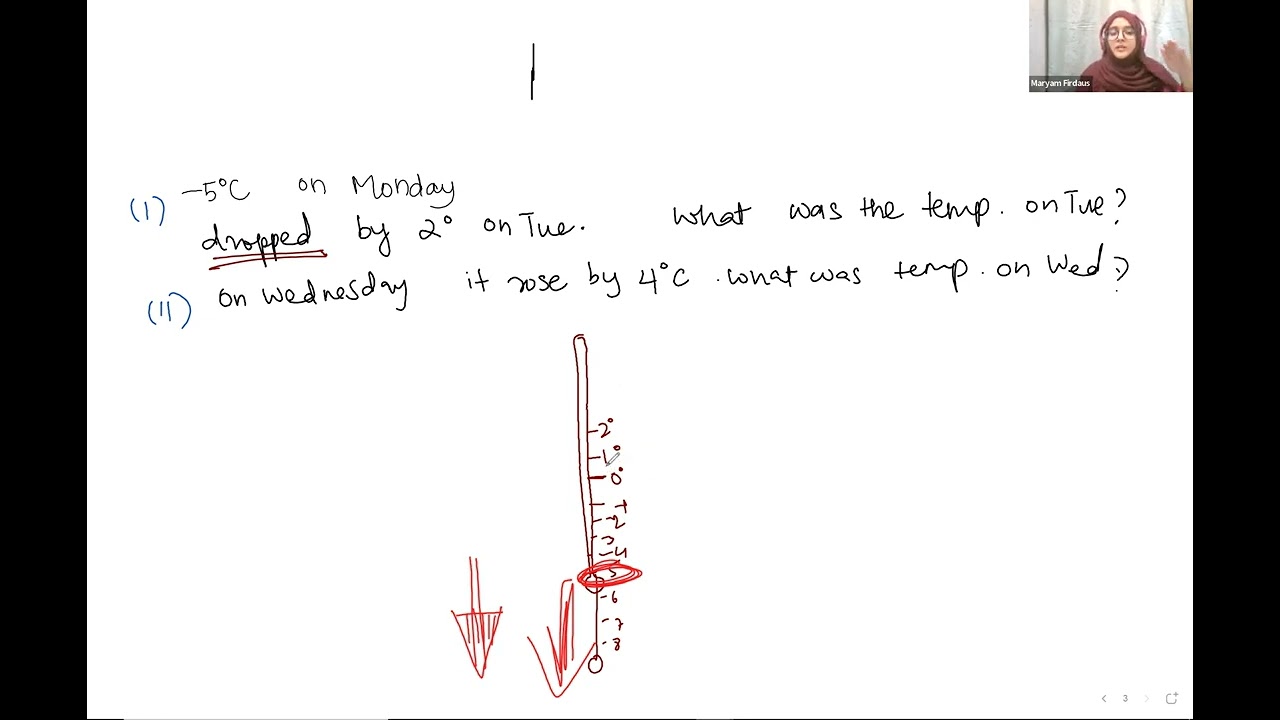 Maryam Firdaus
(I) -5°C on Monday
dropped by 2° on Tue. What was the temp. on Tue?
(II) On Wednesday it rose by 4°C. What was temp. on Wed?
2°
1°
0°
-1
-2
-3
-4
5
-6
-7
-8
3